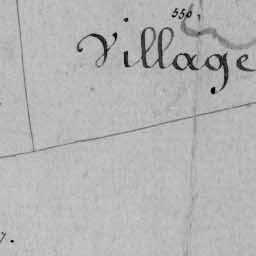 556.
Village
7.